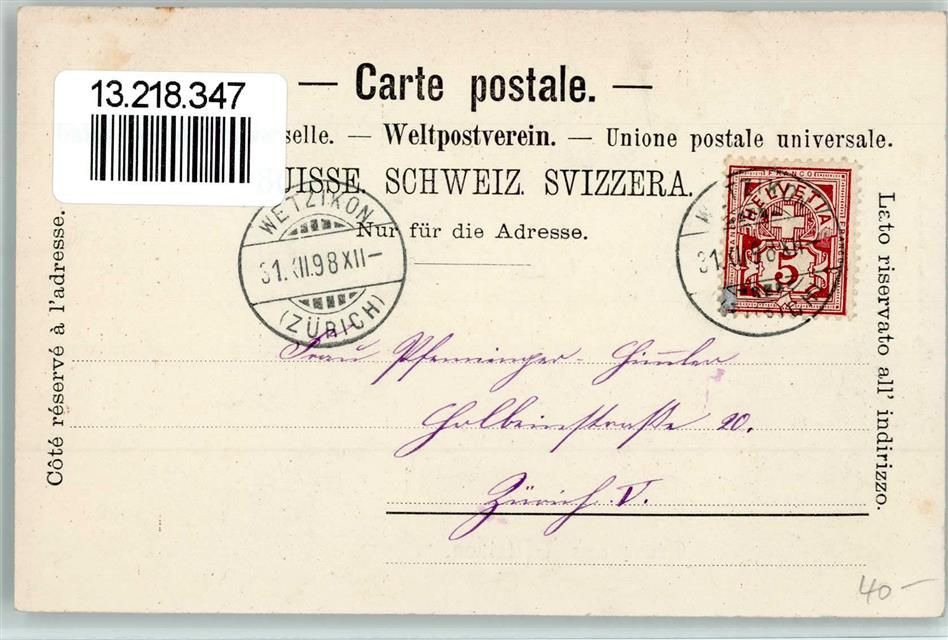 13.218.347
— Carte postale. —
selle. — Weltpostverein. — Unione postale universale.
UISSE. SCHWEIZ. SVIZZERA.
Nur für die Adresse.
Côté réservé à l'adresse.
Lato riservato all' indirizzo.
WETZIKON
31.XII.98 XII–
(ZÜRICH)
FRANCO
HELVETIA
FRANCO
5
31.XII.98 XII
Frau Pfenninger-Himmler
Holbeinstraße 20.
Zürich V.
40–